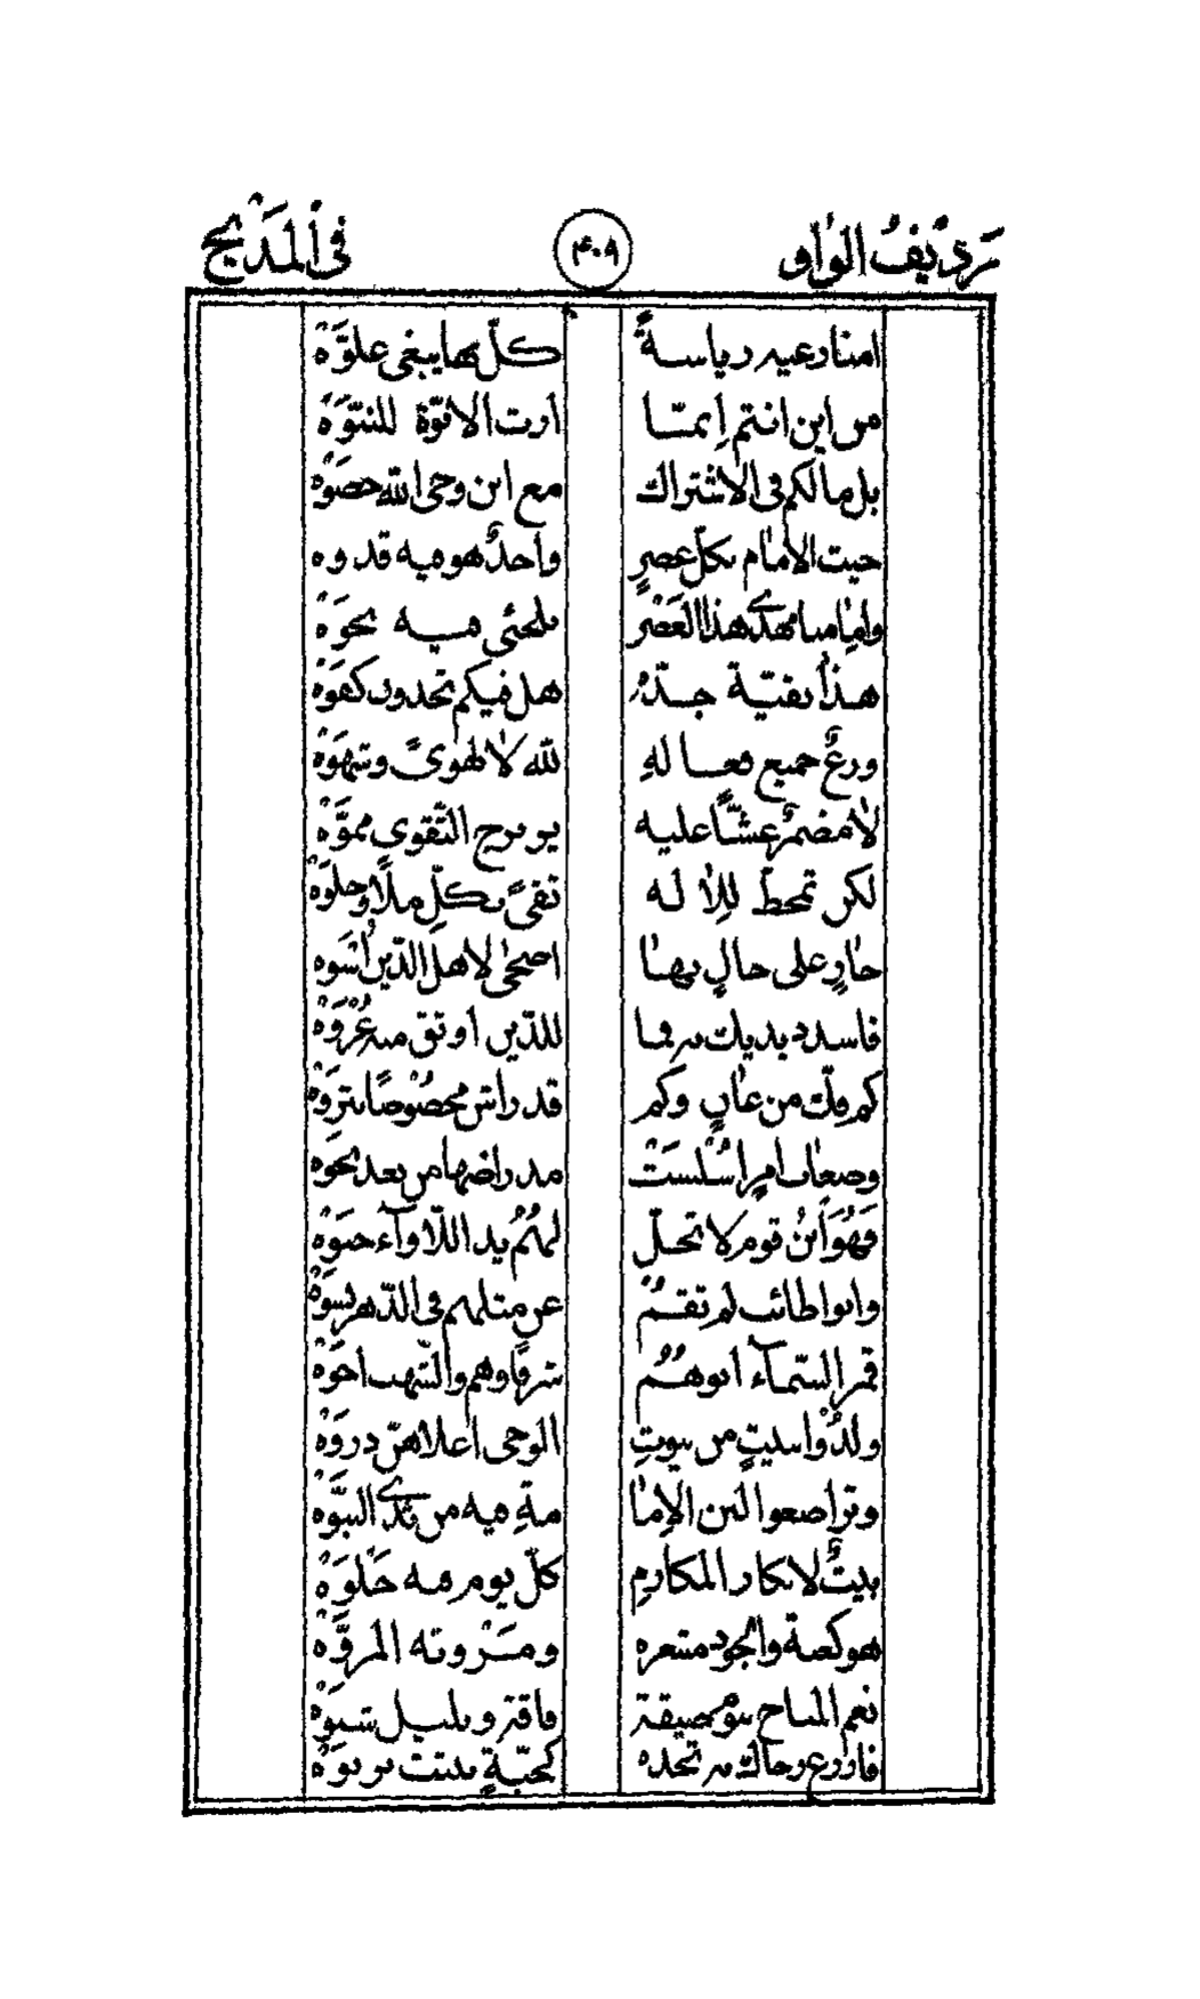 رديف الواو ۴۰۹ في المديح
رياسةً كلّ بها يبغي علوّه
من اين انتم إنمّا ارث الانوّة للنتوّه
بل مالكم في الاشتراك مع ابن وحي الله حصوه
حيث الامام بكلّ عصرٍ واحدٌ هو فيه قدوه
وامامنا مهدي هذا العَصْر ملجئي فيه نحوه
هذا بقيّة جدّه هل فيكم تجدون كفوه
ورعٌ جميع فعاله لله لا لهوىً وشهوه
لا مضمرٌ غشّاً عليه ببرج التّقوى مموّه
لكن تمحّض للاله تقىً بكلّ ملاً وخلوه
جارٍ على حالٍ بها اضحى لاهل الدّين اُسوه
فاسدد يديك به فما للدّين اوثق منه عُروه
كم فكّ من عانٍ وكم قد راش مخصُوصاً بثروه
وصعاب امرٍ اسْلستْ قد راضها من بعد نخوه
فهُوَ ابنُ قوم لا تحلّ لهُمُ يد اللّاوآء حبوه
وابوا اطائب لم تقمُ عن مثلهم في الدّهر نسوه
قمر السّمآء ابوهُمُ شرفاً وهم والشّهب اخوه
ولدُوْا ببيتٍ من بيوتِ الوحي اعلاهنّ ذروه
وتراضعوا لبن الاما مةِ فيه من ثدي النبوّه
بيتٌ لابكار المكارمِ كلّ يوم فيه جَلوه
هو كعبة والجود مشعره ومَرْوته المروّه
نعم المناخ وبليل شتوه
كحبّةٍ نبتت بربوه